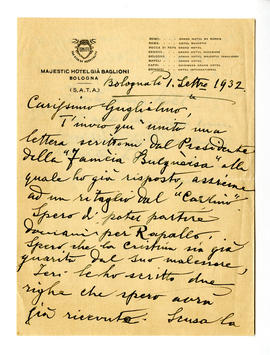 MAJESTIC HOTEL GIÀ BAGLIONI
BOLOGNA
(S.A.T.A.)
Bologna li 1. Settre 1932
Carissimo Guglielmo,
T'invio qui unito una
lettera scrittami dal Presidente
della "Famèia Bulgnèisa" alla
quale ho già risposto, assieme
ad un ritaglio dal "Carlino".
Spero di poter partire
domani per Rapallo;
Spero che la Cristina sia già
guarita dal suo malessere,
Ieri le ho scritto due
righe che spero avrà
già ricevute. Scusa la